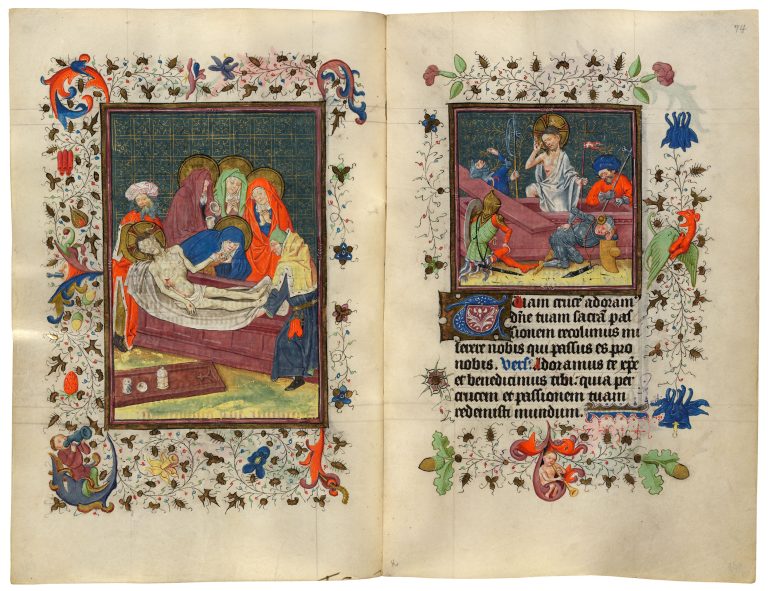 Tuam crucē adoram᷒
dn̄e tuam sacrā pas
sionem recolimus mi
serere nobis qui passus es pro
nobis. Vers. Adoramus te xp̄e
et benedicimus tibi. quia per
crucem et passionem tuam
redemisti mundum.